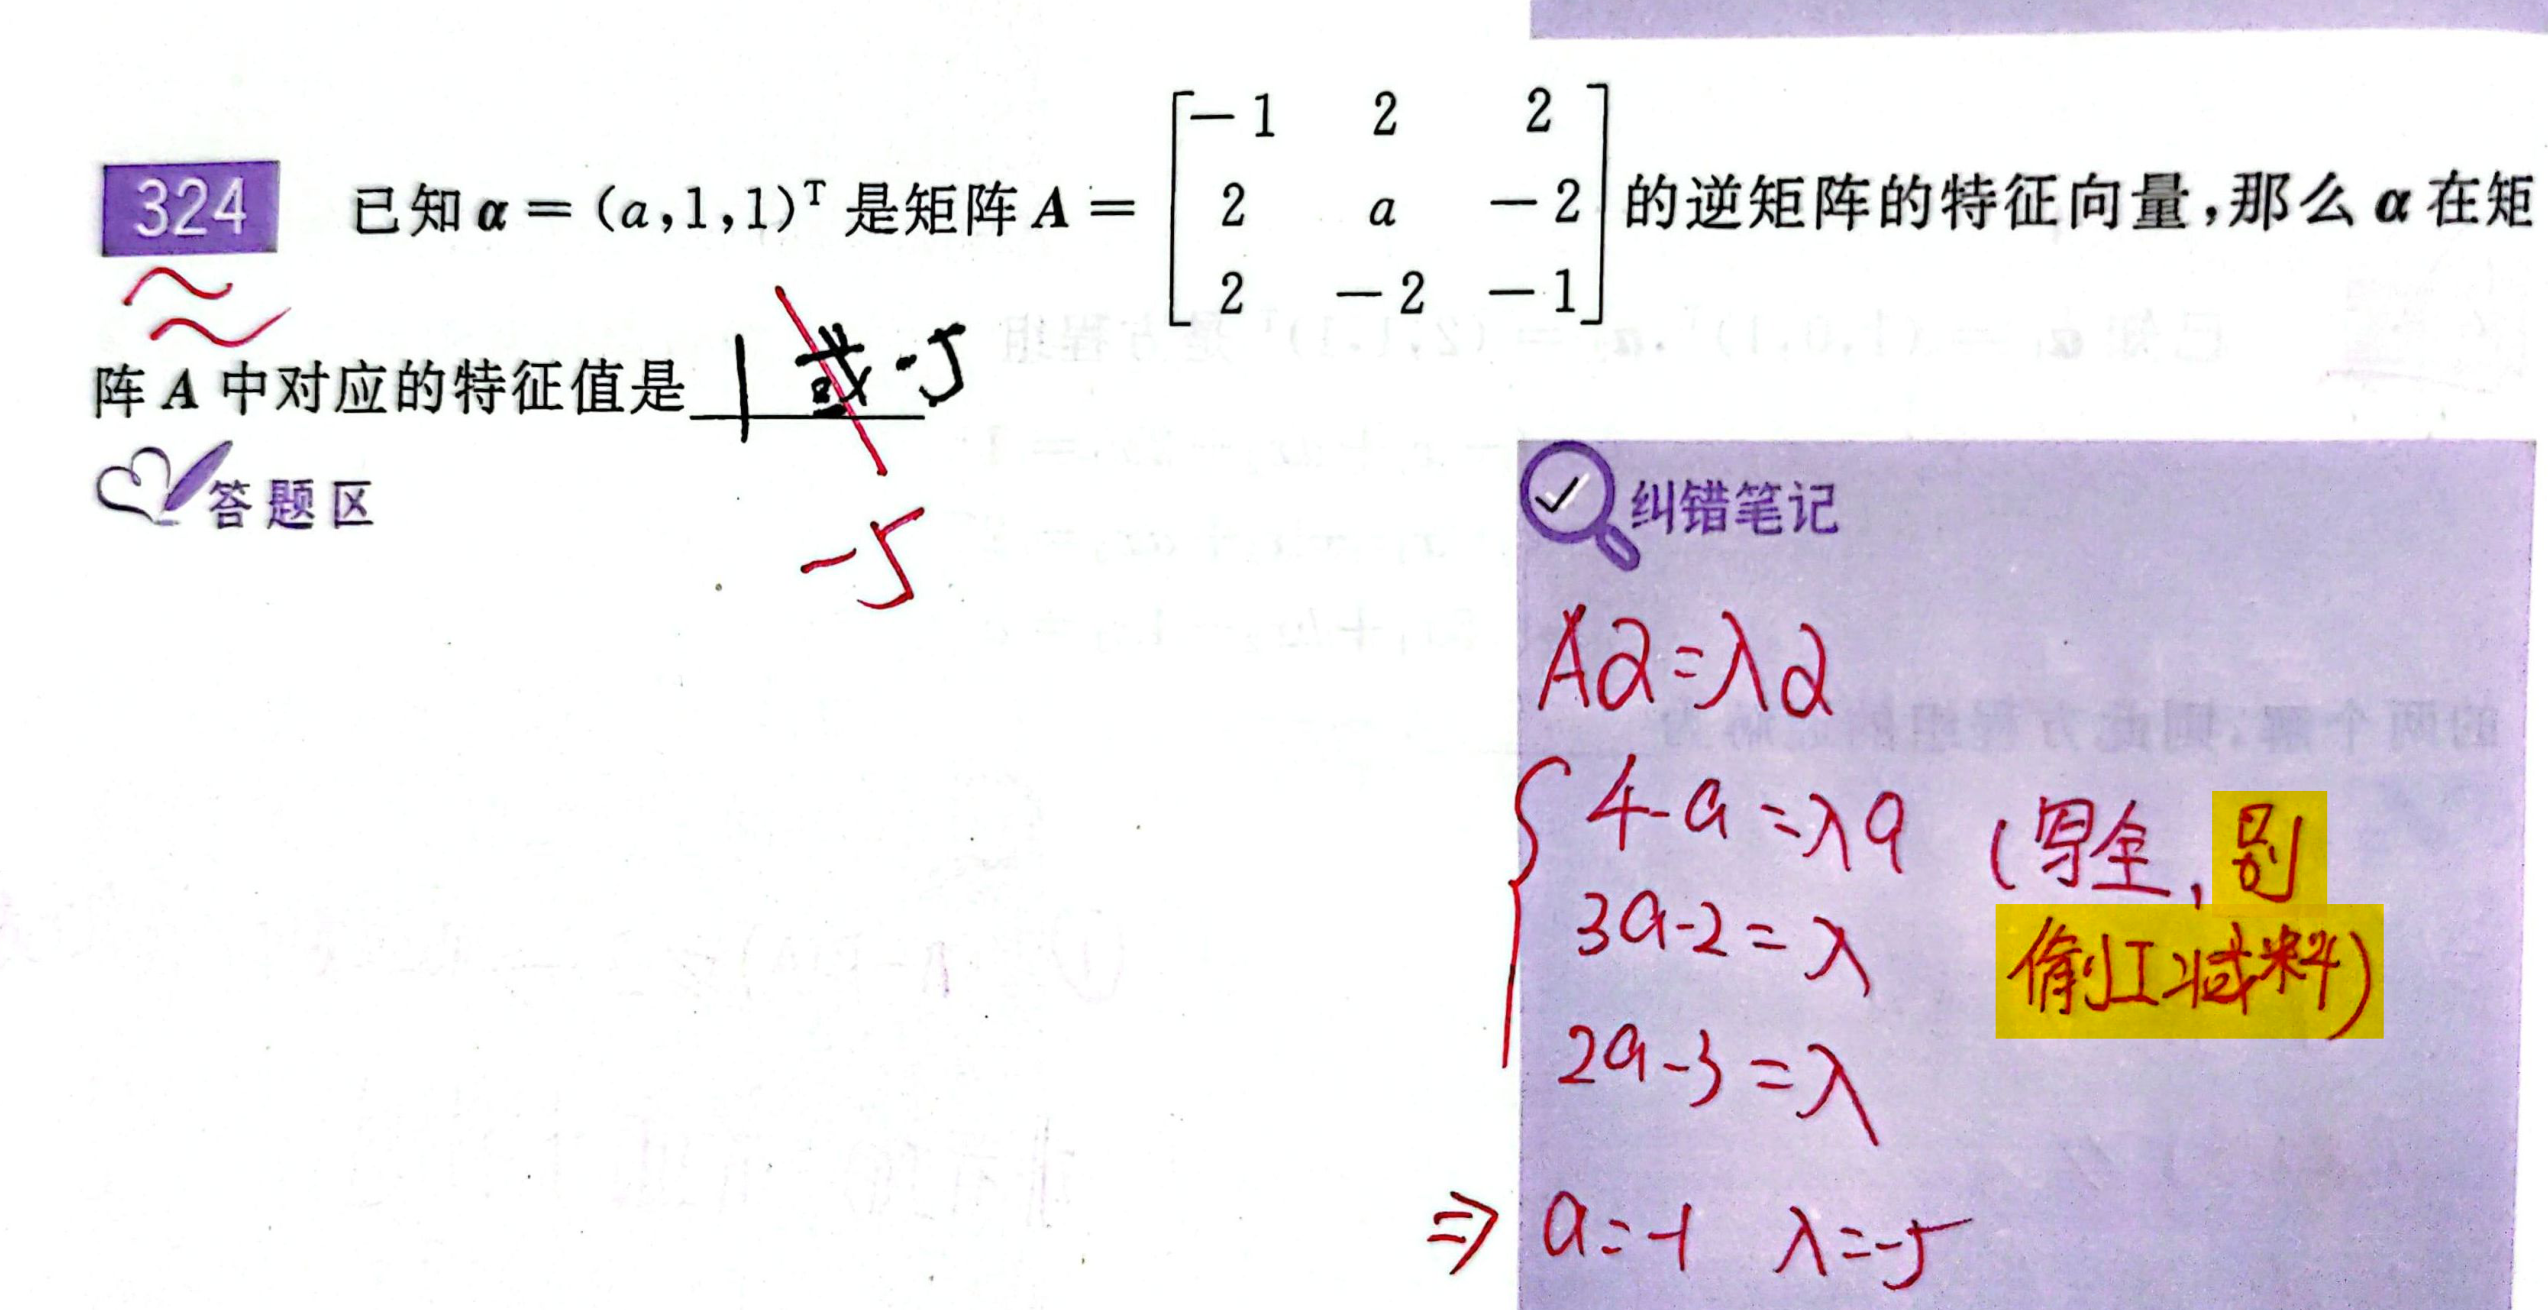 324 已知 α = (a,1,1)ᵀ 是矩阵 A = [−1 2 2; 2 a −2; 2 −2 −1] 的逆矩阵的特征向量,那么 α 在矩
阵 A 中对应的特征值是 1 或 -5
-5
答题区
纠错笔记
Aα=λα
4-a=λa (写全,别
偷工减料)
3a-2=λ
2a-3=λ
⇒ a=-1 λ=-5